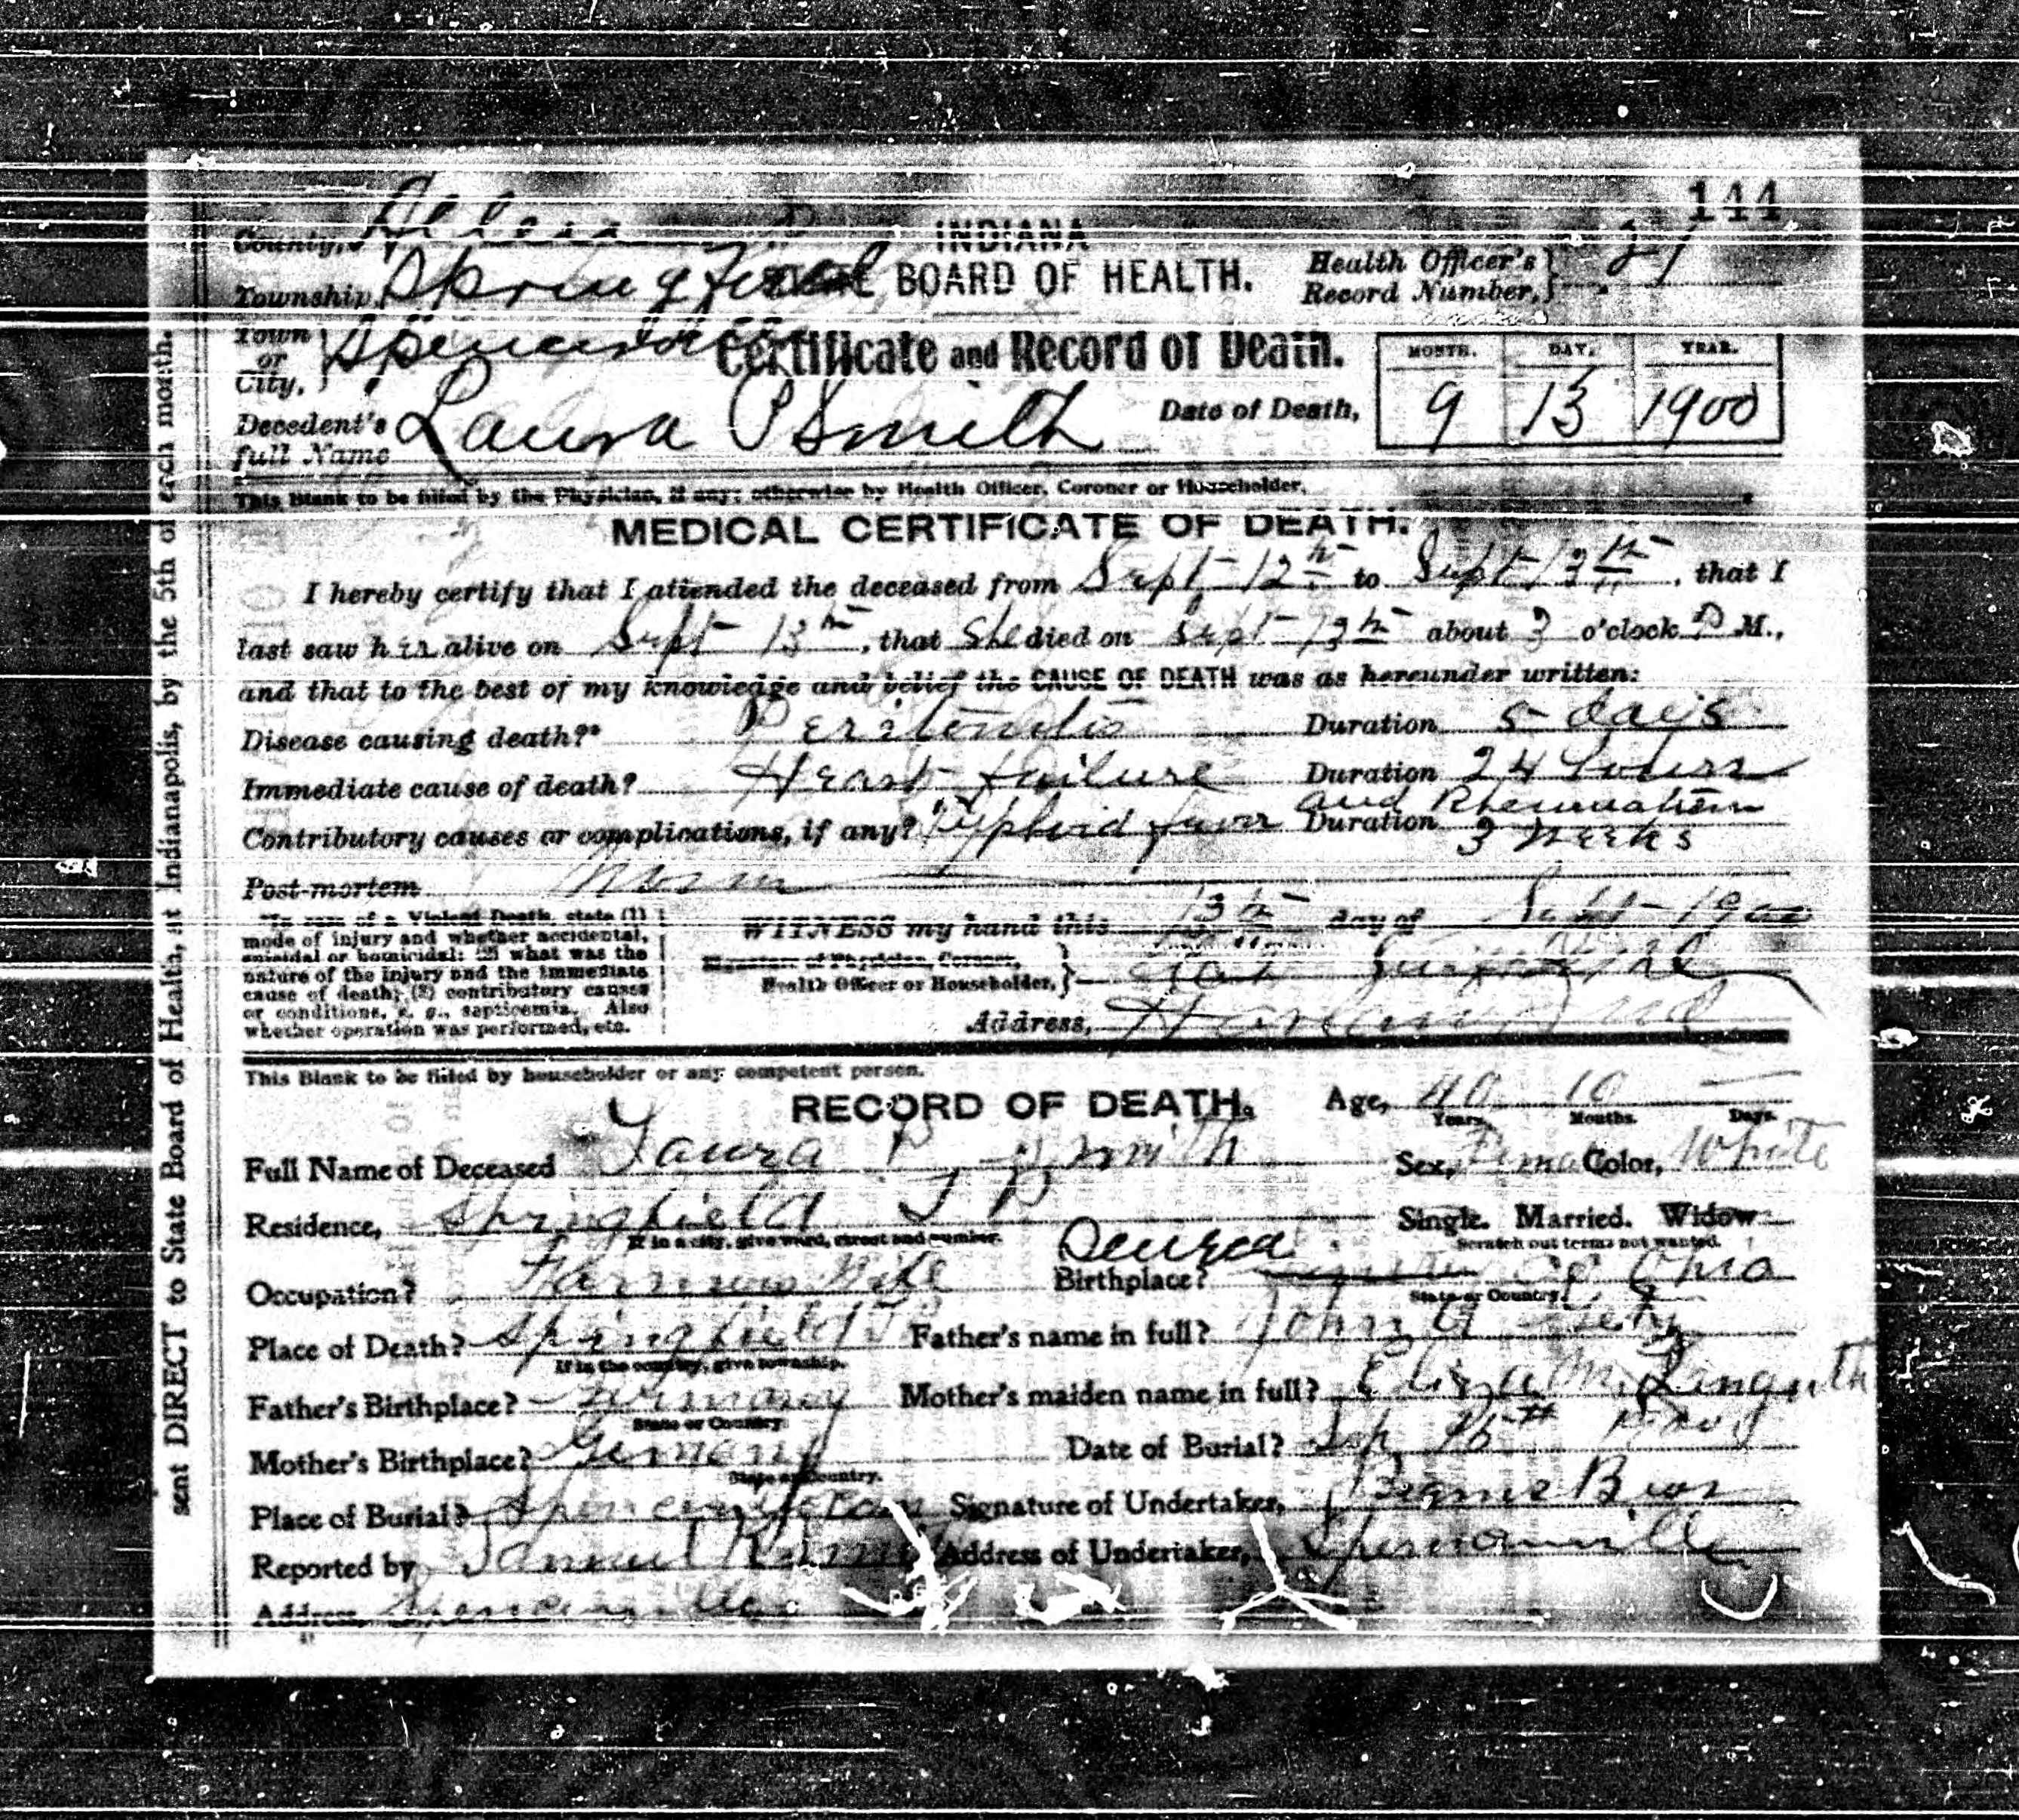 144
County, Allen
INDIANA
Township, Springfield
STATE BOARD OF HEALTH.
Health Officer's Record Number, 21
Town or City, Spencerville
Certificate and Record of Death.
MONTH. DAY. YEAR.
Decedent's full Name Laura P Smith
Date of Death, 9 13 1900
This Blank to be filled by the Physician, if any; otherwise by Health Officer, Coroner or Householder.
MEDICAL CERTIFICATE OF DEATH.
I hereby certify that I attended the deceased from Sept 12th to Sept 13th, that I
last saw her alive on Sept 13th, that She died on Sept 13th about 3 o'clock P.M.,
and that to the best of my knowledge and belief the CAUSE OF DEATH was as hereunder written:
Disease causing death?* Peritonitis Duration 5 days
Immediate cause of death? Heart failure Duration 24 hours
and Rheumatism
Contributory causes or complications, if any? Typhoid fever Duration 3 weeks
Post-mortem
*In case of a Violent Death, state (1)
mode of injury and whether accidental,
suicidal or homicidal; (2) what was the
nature of the injury and the immediate
cause of death; (3) contributory causes
or conditions, e. g., septicemia. Also
whether operation was performed, etc.
WITNESS my hand this 13th day of Sept 1900
Signature of Physician, Coroner,
Health Officer or Householder,
Address, Ind
This Blank to be filled by householder or any competent person.
RECORD OF DEATH.
Age, 40 10
Years. Months. Days.
Full Name of Deceased Laura P. Smith
Sex, Female Color, White
Residence, Springfield T P
If in a city, give ward, street and number.
Single. Married. Widow
Scratch out terms not wanted.
Occupation? Farmers Wife
Seneca
Birthplace? Co Ohio
State or Country.
Place of Death? Springfield T P
If in the country, give township.
Father's name in full? John
Father's Birthplace? Germany
State or Country.
Mother's maiden name in full? Eliza M.
Mother's Birthplace? Germany
State or Country.
Date of Burial? Sep 15th
Place of Burial?
Signature of Undertaker,
Reported by Samuel
Address of Undertaker, Spencerville
Address, Spencerville
sent DIRECT to State Board of Health, at Indianapolis, by the 5th of each month.